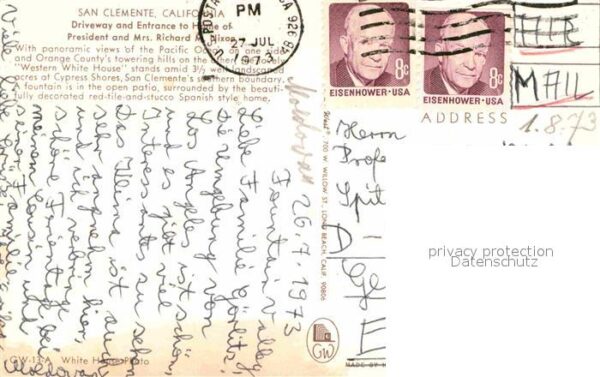 SAN CLEMENTE, CALIFORNIA
Driveway and Entrance to Home of
President and Mrs. Richard M. Nixon
With panoramic views of the Pacific Ocean on one side
and Orange County's rolling hills on the other
"Western White House" stands amid 3½ well landscaped
acres at Cypress Shores, San Clemente's southern boundary.
A fountain is in the open patio, surrounded by the beauti-
fully decorated red-tile-and-stucco Spanish style home.
PM
27 JUL
EISENHOWER·USA
8c
EISENHOWER·USA
8c
AIR
MAIL
ADDRESS
1.8.73
Fountain valley
26.7.1973
Liebe Familie Görlitz!
Die Umgebung von
Los Angeles ist schön,
und es gibt viel
Interessantes zu sehen
Das Klima ist auch
sehr angenehm
und ich verbringe hier
schöne Ferientage bei
meinem Cousin und
Viele Grüße
Herrn
Spit
privacy protection
Datenschutz
West 7100 W. WILLOW ST., LONG BEACH, CALIF. 90806
GW
GW-13-A White House Photo
MADE BY